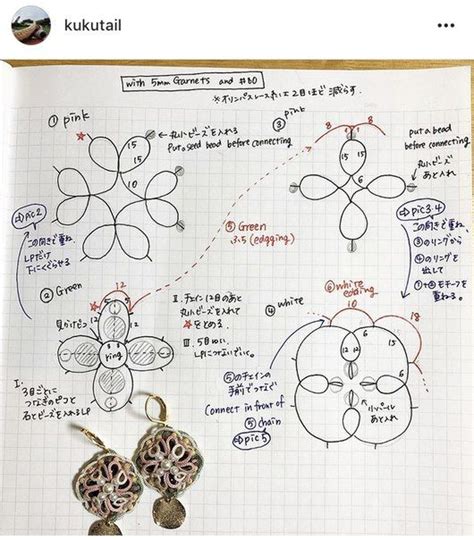 kukutail
with 5mm Garnets and #80
※オリンパスレース糸は2目ほど減らす。
① pink
15
15
10
丸小ビーズを入れる
Put a seed bead before connecting
③ pink
8
8
15
15
6
put a bead before connecting
丸小ビーズ
あと入れ
⇨pic2
この向きで重ね、
LPだけ
下にくぐらせる
⑤ Green
3.5 (edgging)
⇨pic3.4
この向きで重ね、
③のリングから
④のリングを
出して
①+②モチーフを
重ねる。
② Green
12
12
12
ring
見かけピコ
I.
3目ごとに
つなぎのピコと
石とビーズを入れるLP
II. チェイン12目のあと
丸小ビーズを入れて
★をとめる。
III. 5目めに、
LPにつないでいく。
④ white
⑥ white
edging
10
18
6
6
15
12
12
小パール
あと入れ
⑤のチェインの
手前でつなぐ
Connect in front of
⑤ chain
⇨pic5